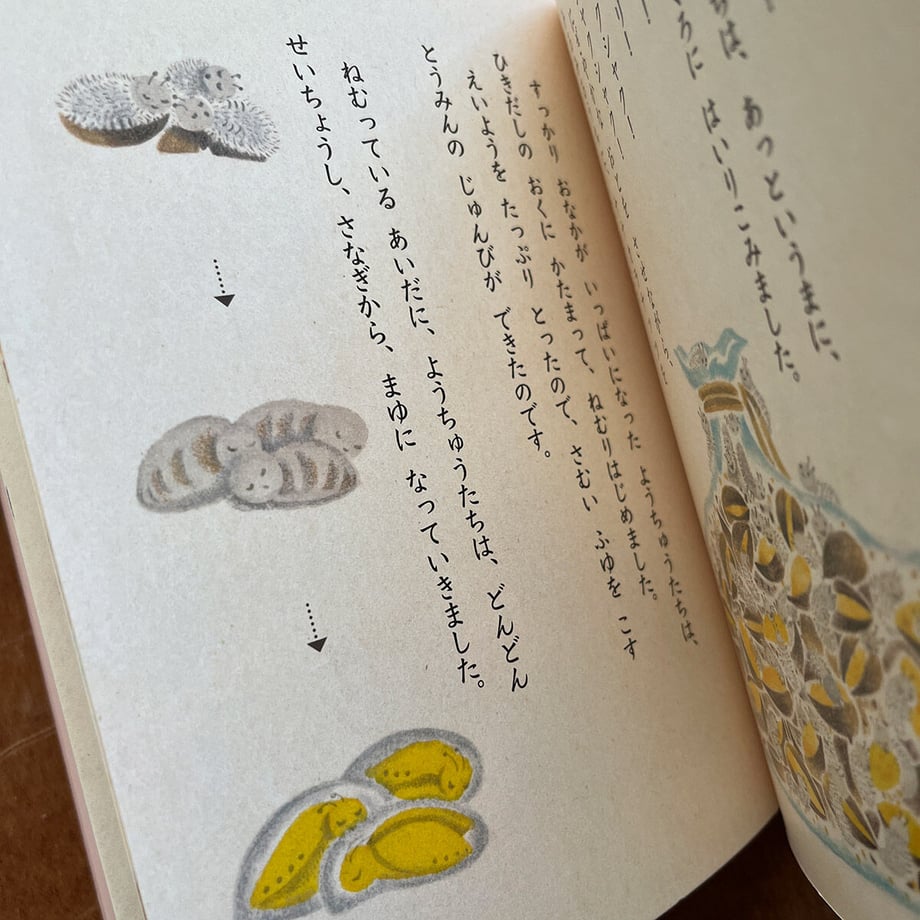 ちは、　あっというまに、
ろに　はいりこみました。
リー！
クシャクー！
すっかり　おなかが　いっぱいになった　ようちゅうたちは、
ひきだしの　おくに　かたまって、ねむりはじめました。
えいようを　たっぷり　とったので、さむい　ふゆを　こす
とうみんの　じゅんびが　できたのです。
ねむっている　あいだに、ようちゅうたちは、どんどん
せいちょうし、さなぎから、まゆに　なっていきました。